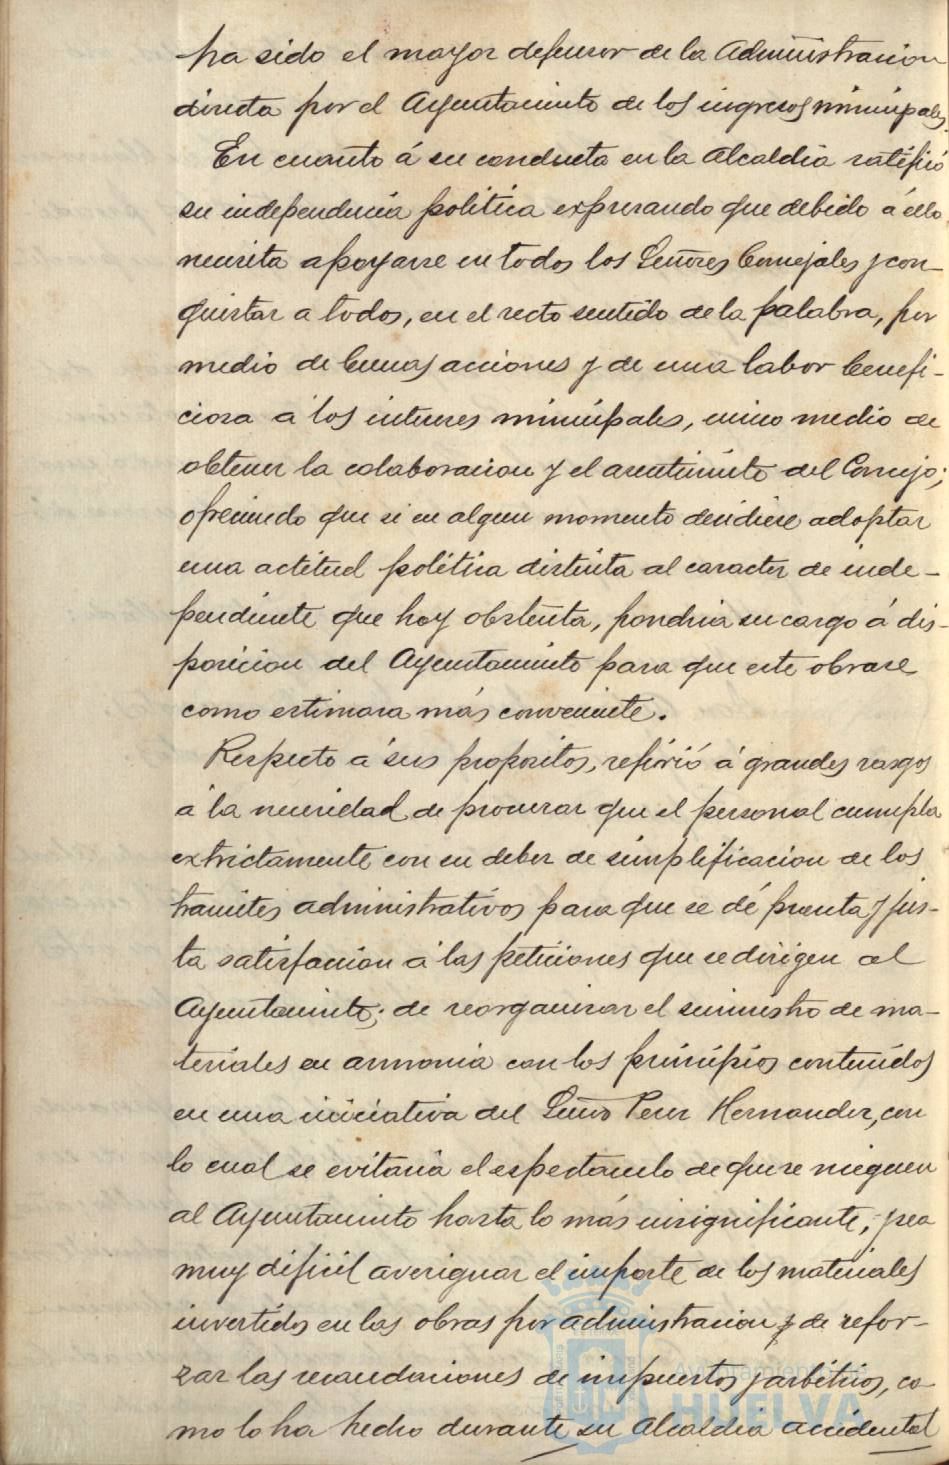 ha sido el mayor defensor de la Administracion
directa por el Ayuntamiento de los ingresos municipales.
En cuanto á su conducta en la Alcaldia ratificó
su independencia politica expresando que debido á ello
necesita apoyarse en todos los Señores Concejales y con-
quistar a todos, en el recto sentido de la palabra, por
medio de buenas acciones y de una labor benefi-
ciosa á los intereses municipales, unico medio de
obtener la colaboracion y el asentimiento del Concejo;
ofreciendo que si en algun momento decidiese adoptar
una actitud politica distinta al caracter de inde-
pendiente que hoy obstenta, pondria su cargo á dis-
posicion del Ayuntamiento para que este obrase
como estimara más conveniente.
Respecto á sus propositos, refirió á grandes rasgos
á la necesidad de procurar que el personal cumpla
extrictamente con su deber de simplificacion de los
tramites administrativos para que se dé pronta y jus-
ta satisfaccion á las peticiones que se dirigen al
Ayuntamiento; de reorganizar el suministro de ma-
teriales en armonia con los principios contenidos
en una iniciativa del Señor Perez Hernandez, con
lo cual se evitaria el espectaculo de que se nieguen
al Ayuntamiento hasta lo más insignificante,
muy dificil averiguar el importe de los materiales
invertidos en las obras por administracion y de refor-
zar las recaudaciones de impuestos y arbitrios, co-
mo lo ha hecho durante su Alcaldia accidental
Ayuntamiento de
HUELVA